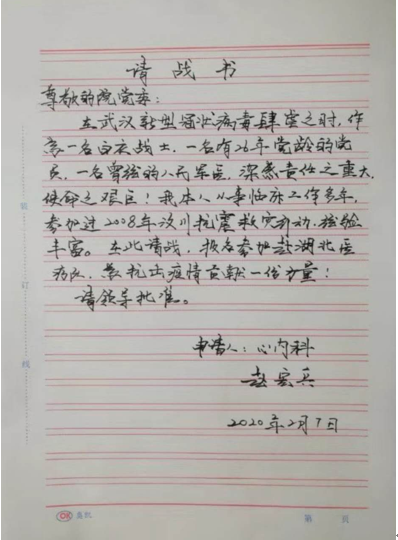 请战书
尊敬的院党委：
在武汉新型冠状病毒肆虐之时，作
为一名白衣战士，一名有26年党龄的党
员，一名曾经的人民军医，深感责任之重大，
使命之艰巨！我本人从事临床工作多年，
参加过2008年汶川抗震救灾行动，经验
丰富。在此请战，报名参加赴湖北医
疗队，为抗击疫情贡献一份力量！
请领导批准。
申请人：心内科
赵宏兵
2020年2月7日
装
订
线
OK
第 页